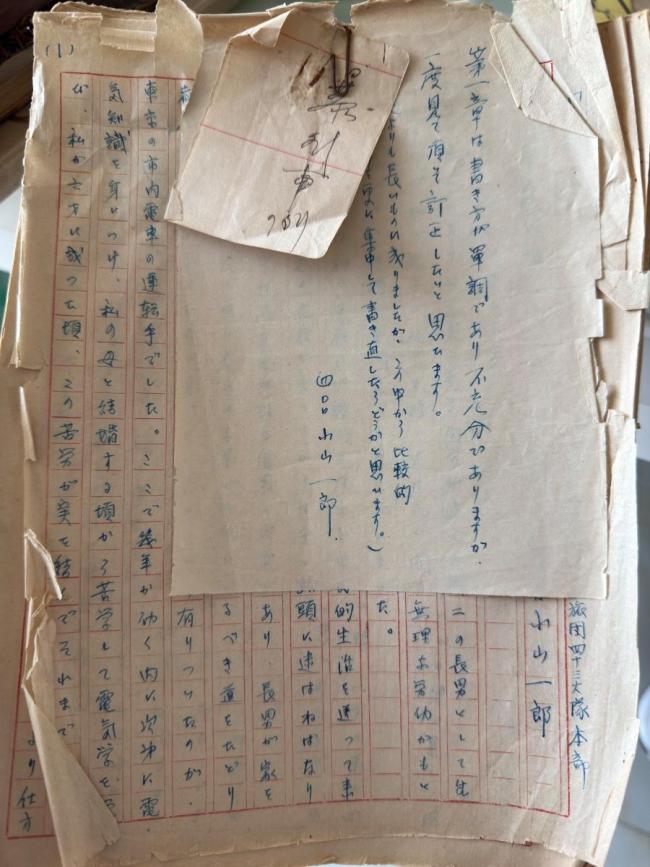 第一章は書き方が単調であり不充分でありますが、
一度見て頂き訂正したいと思ひます。
よりも長いものに成りましたが、この中から比較的
に集中して書き直したらどうかと思ひます。)
小山一郎
(1)
旅団四十三大隊本部
小山一郎
二の長男として生
無理な労働がもと
た。
的生活を送って来
頭に違はねばなり
あり 長男が家を
るべき道をたどり
有りついたのが、
東京の市内電車の運転手でした。ここで幾年か働く内に次第に電
気知識を身につけ、私の母と結婚する頃から苦学して電気学を
が、私が六才に成った頃、この苦労が実を結
でそれまで
より仕方